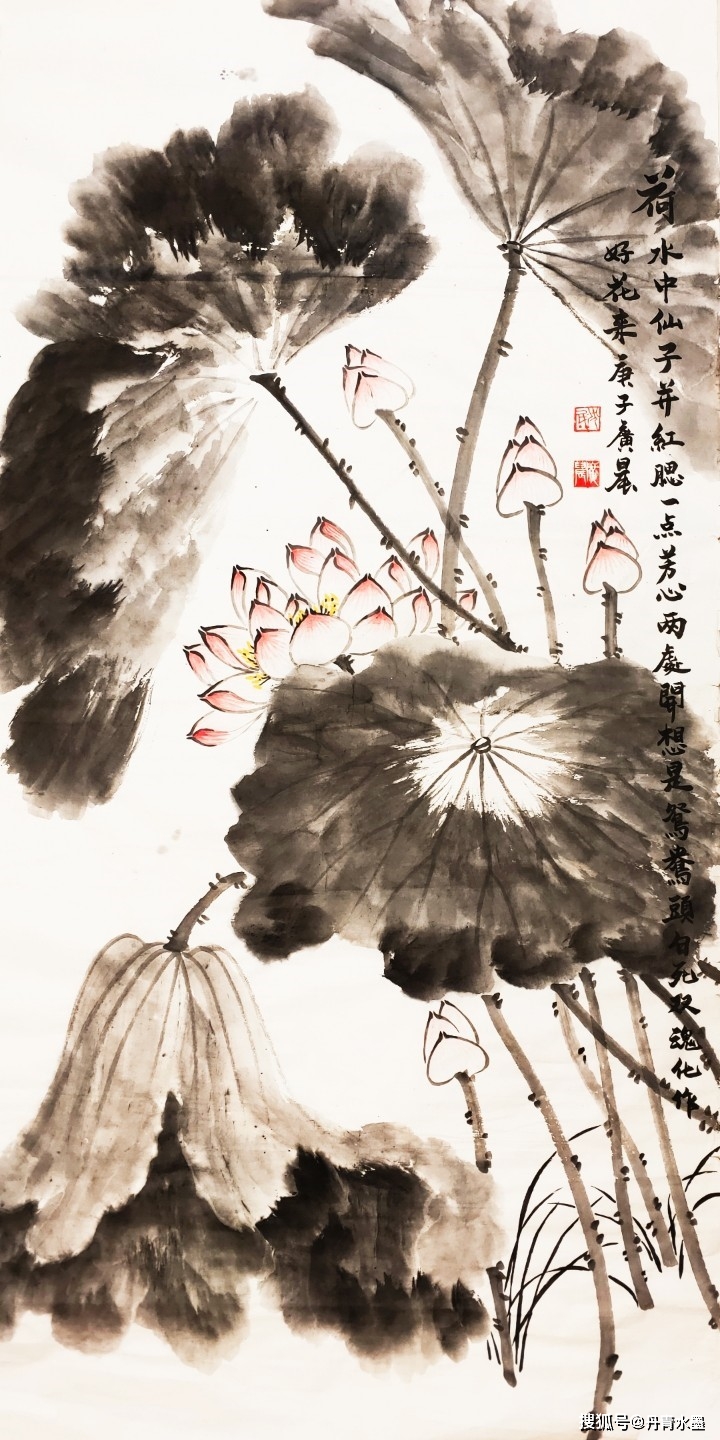 荷
水中仙子并紅腮一点芳心两處開想是鴛鴦頭白死双魂化作
好花来 庚子廣
搜狐号@丹青水墨